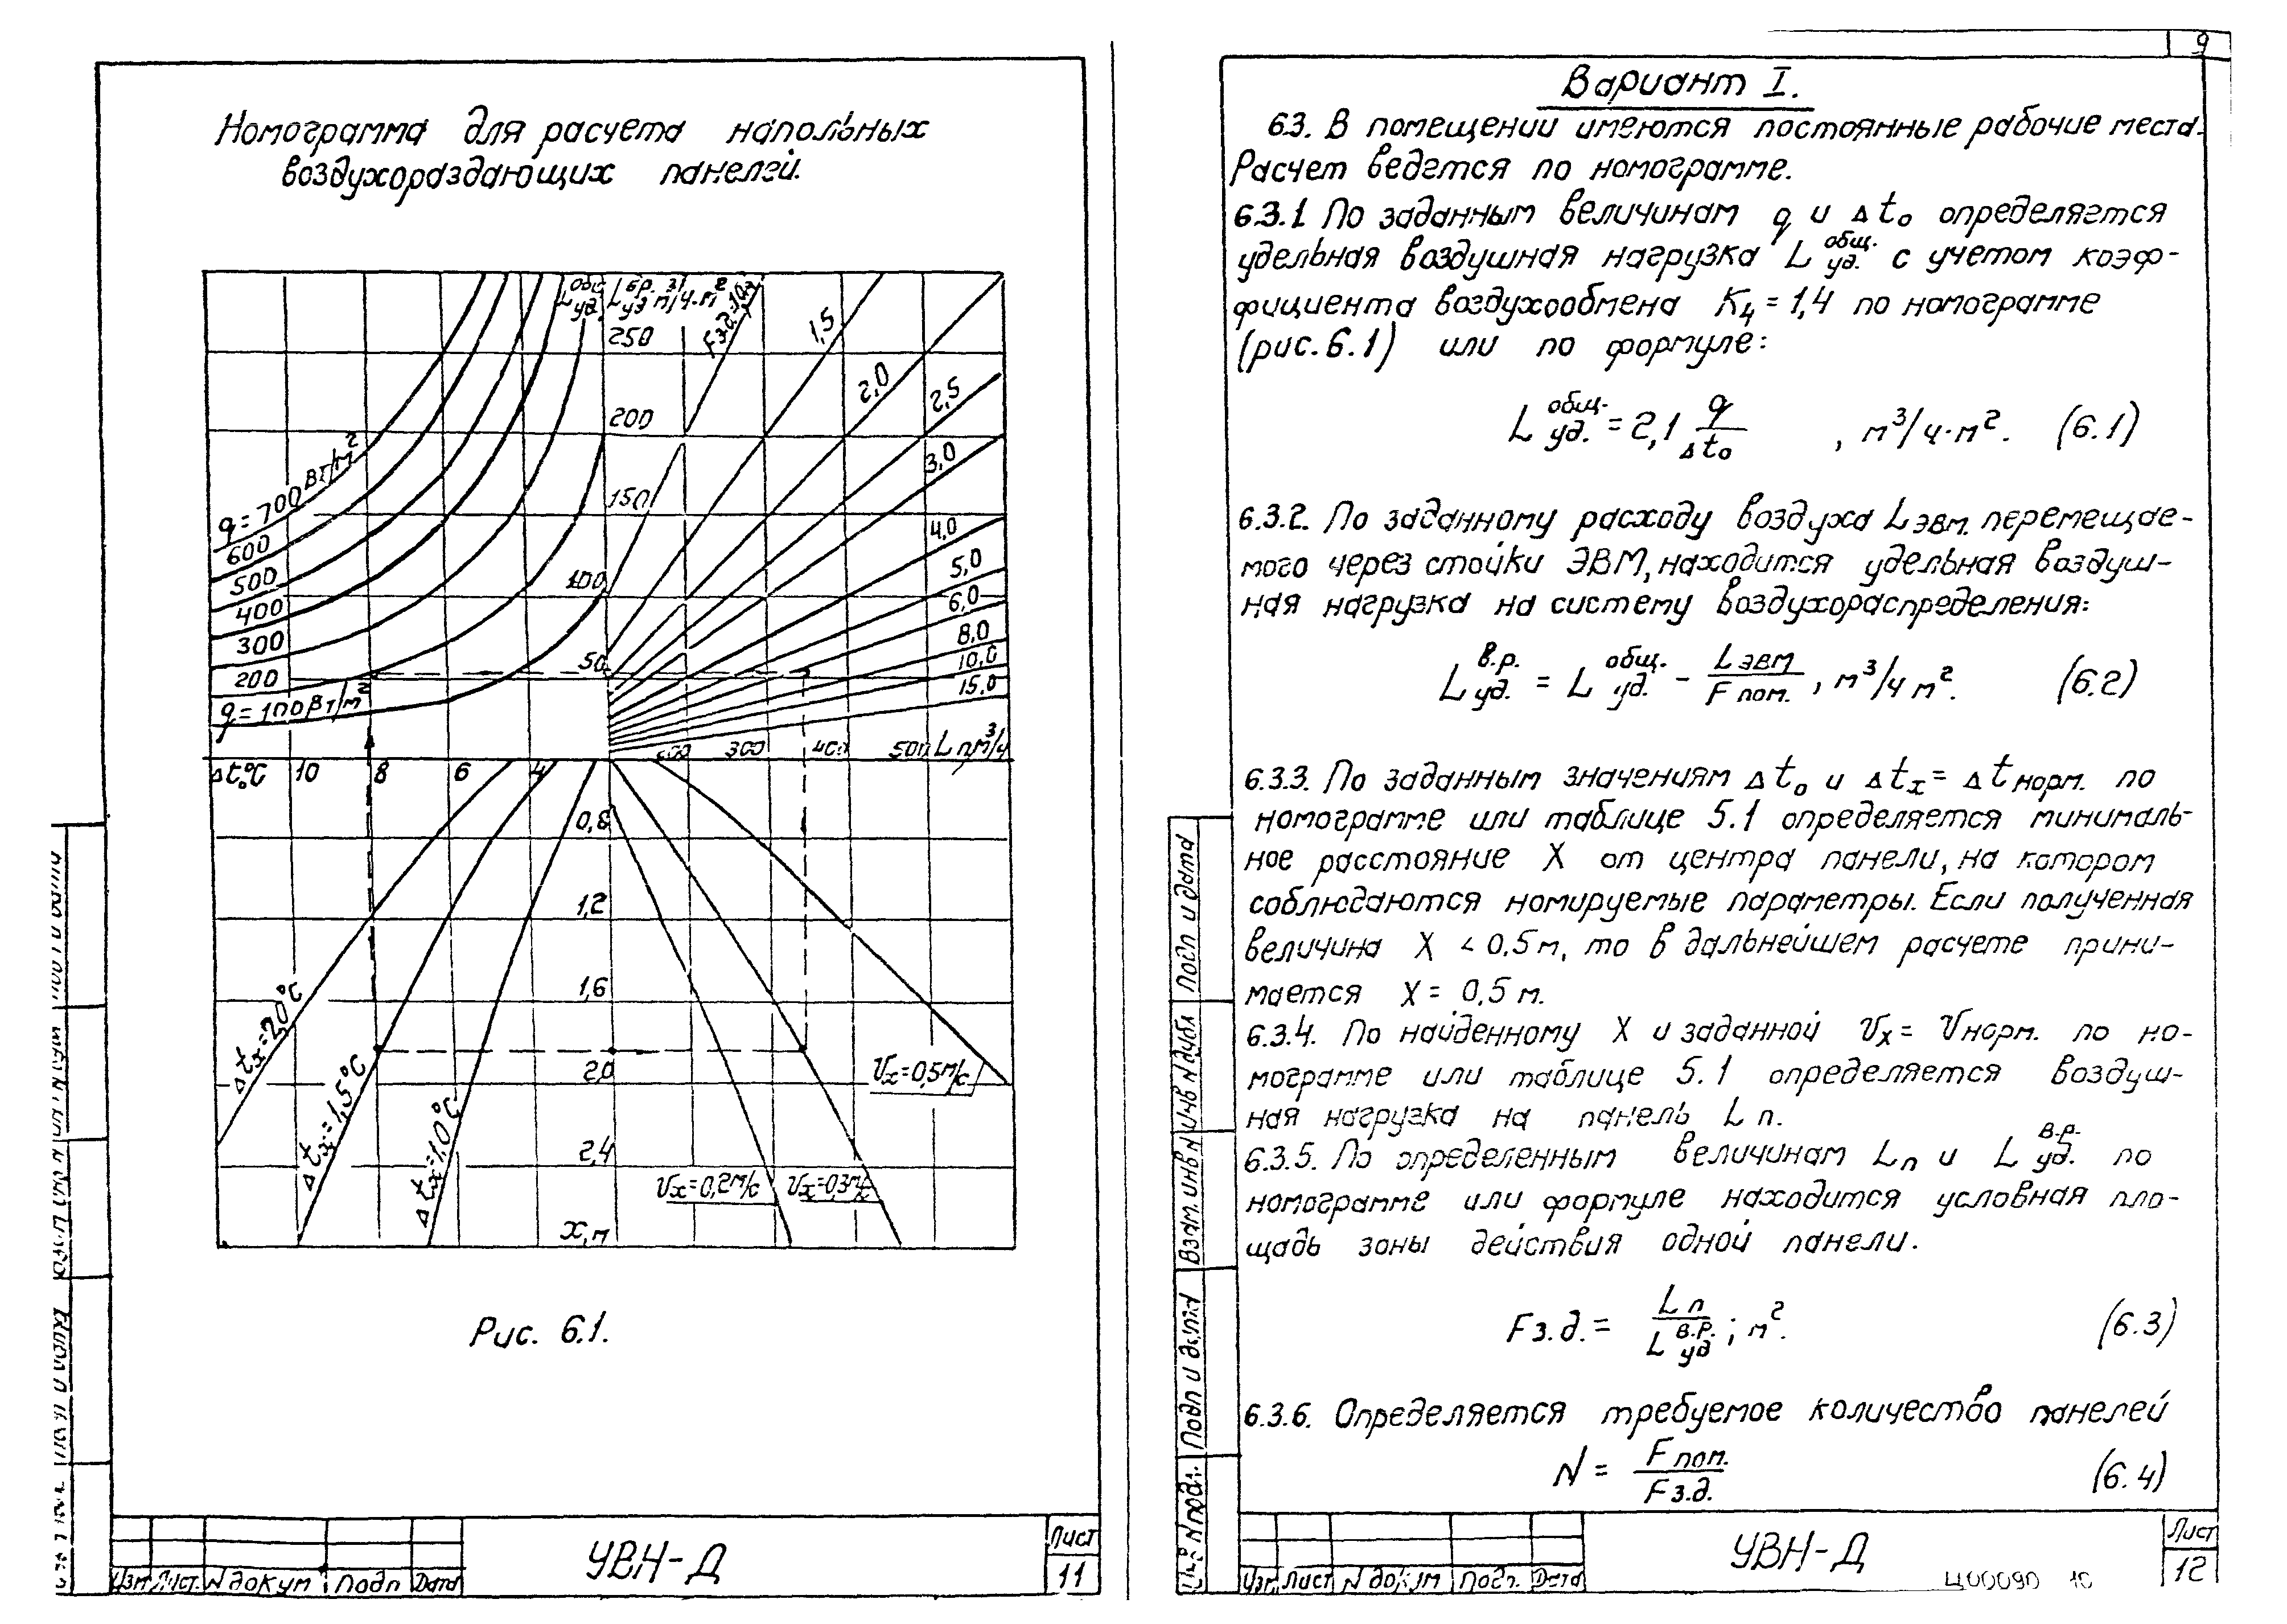 Номограмма для расчета напольных
воздухораздающих панелей.
L общ. уд., L в.р. уд м³/ч·м²
Fз.д=1,0м²
1,5
2,0
2,5
3,0
4,0
5,0
6,0
8,0
10,0
15,0
250
200
150
100
50
q=700 Вт/м²
600
500
400
300
200
q=100 Вт/м²
Δt₀°C 10 8 6 4
200 300 400 500 Lп м³/ч
0,8
1,2
1,6
2,0
2,4
x, м
Δtx=2,0°C
Δtx=1,5°C
Δtx=1,0°C
Vx=0,2м/с
Vx=0,3м/с
Vx=0,5м/с
Рис. 6.1.
Изм Лист. N докум Подп Дата
УВН-Д
Лист
11
9
Вариант I.
6.3. В помещении имеются постоянные рабочие места.
Расчет ведется по номограмме.
6.3.1 По заданным величинам q и Δt₀ определяется
удельная воздушная нагрузка L общ. уд. с учетом коэф-
фициента воздухообмена K₄=1,4 по номограмме
(рис. 6.1) или по формуле:
L общ. уд. = 2,1 q/Δt₀ , м³/ч·м². (6.1)
6.3.2. По заданному расходу воздуха Lэвм. перемещае-
мого через стойки ЭВМ, находится удельная воздуш-
ная нагрузка на систему воздухораспределения:
L в.р. уд. = L общ. уд. - Lэвм/Fпом. , м³/ч м². (6.2)
6.3.3. По заданным значениям Δt₀ и Δtx= Δt норм. по
номограмме или таблице 5.1 определяется минималь-
ное расстояние X от центра панели, на котором
соблюдаются номируемые параметры. Если полученная
величина X < 0,5 м, то в дальнейшем расчете прини-
мается X= 0,5 м.
6.3.4. По найденному X и заданной Vx= Vнорм. по но-
мограмме или таблице 5.1 определяется воздуш-
ная нагрузка на панель Lп.
6.3.5. По определенным величинам Lп и L в.р. уд. по
номограмме или формуле находится условная пло-
щадь зоны действия одной панели.
Fз.д. = Lп/L в.р. уд ; м². (6.3)
6.3.6. Определяется требуемое количество панелей
N = Fпом./Fз.д. (6.4)
Подп и дата
Инв N дубл
Взам. инв N
Подп и дата
Инв N подл.
Изм Лист N докум Подп. Дата
УВН-Д
Лист
12
Ц00090 10